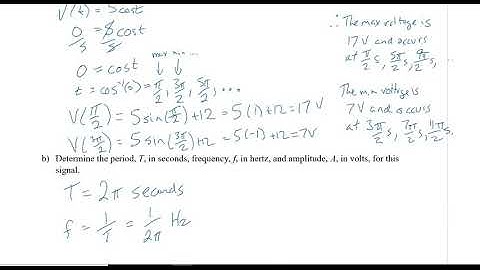 V'(t) = 5cost
0/5 = 5cost/5
0 = cost
max min ...
t = cos⁻¹(0) = π/2, 3π/2, 5π/2, ...
V(π/2) = 5sin(π/2)+12 = 5(1)+12 = 17V
V(3π/2) = 5sin(3π/2)+12 = 5(-1)+12 = 7V
∴ The max voltage is
17V and occurs
at π/2 s, 5π/2 s, 9π/2 s, ...
The min voltage is
7V and occurs
at 3π/2 s, 7π/2 s, 11π/2 s, ...
b) Determine the period, T, in seconds, frequency, f, in hertz, and amplitude, A, in volts, for this
signal.
T = 2π seconds
f = 1/T = 1/2π Hz